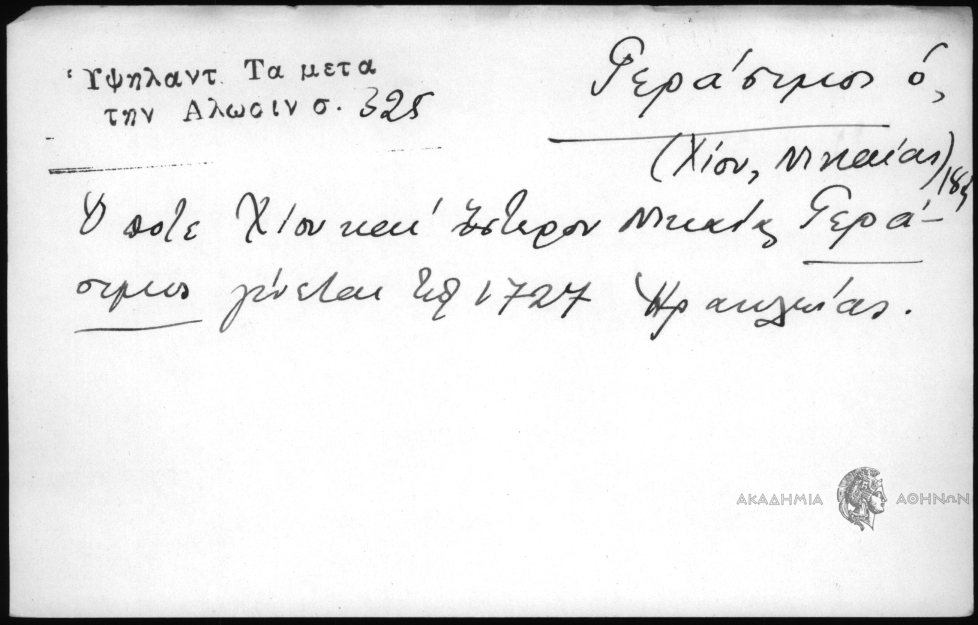 Ὑψηλαντ. Τα μετα
την Αλωσιν σ. 325
Γεράσιμος ὁ,
(Χίου, Νικαίας)
Ὁ ποτε Χίου καὶ ὕστερον Νικαίας Γερά-
σιμος γίνεται τῷ 1727 Ἡρακλείας.
ΑΚΑΔΗΜΙΑ ΑΘΗΝΩΝ